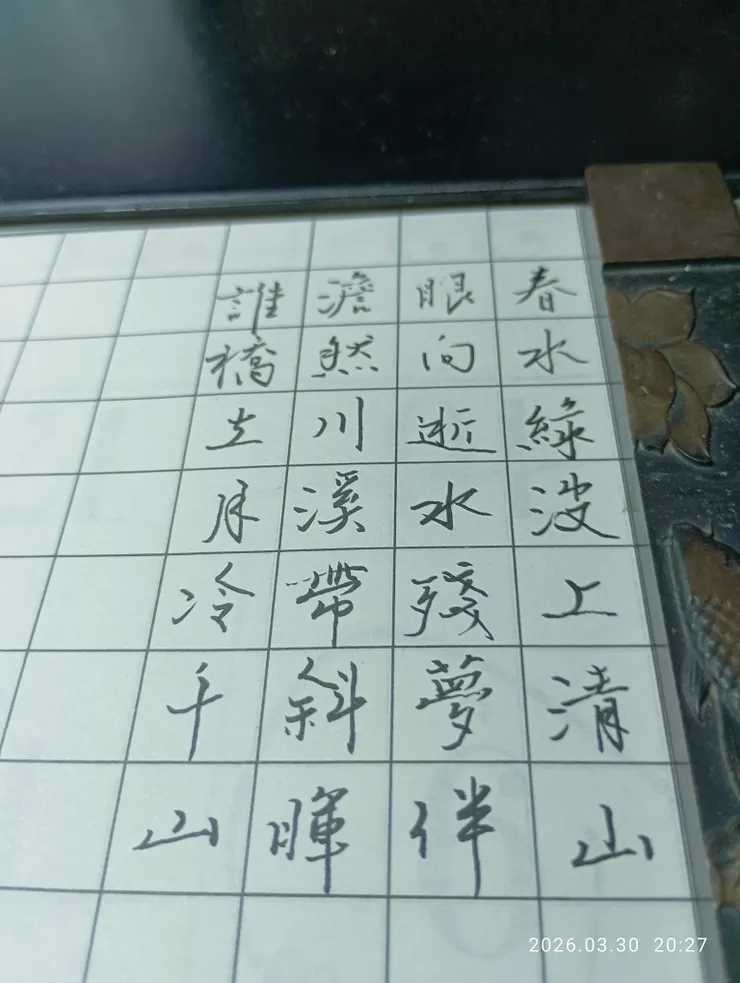 春水綠波上清山
眼向逝水殘夢伴
澹然川溪帶斜暉
誰橋立月冷千山
2026.03.30 20:27